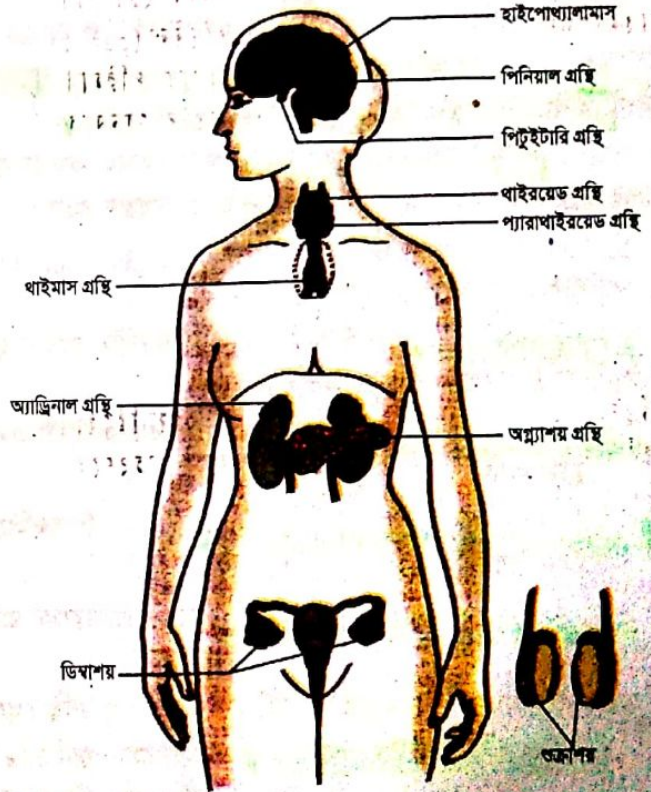 হাইপোথ্যালামাস
পিনিয়াল গ্রন্থি
পিটুইটারি গ্রন্থি
থাইরয়েড গ্রন্থি
প্যারাথাইরয়েড গ্রন্থি
থাইমাস গ্রন্থি
অ্যাড্রিনাল গ্রন্থি
অগ্ন্যাশয় গ্রন্থি
ডিম্বাশয়
শুক্রাশয়